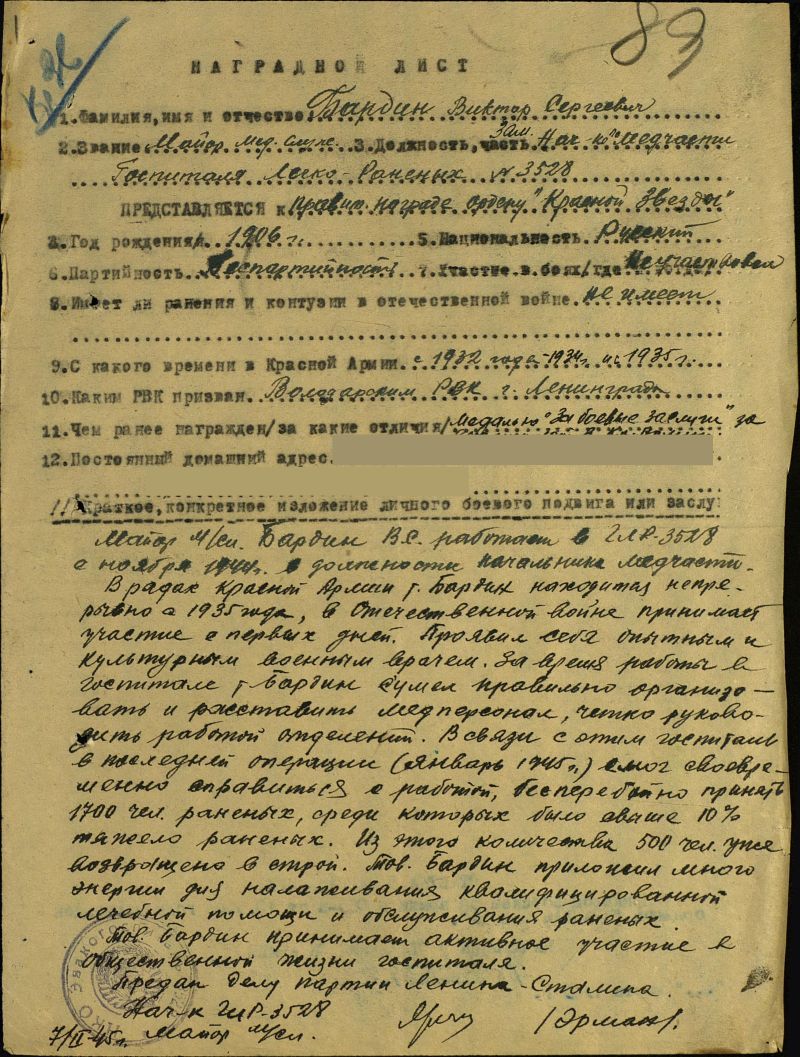 83
НАГРАДНОЙ ЛИСТ
1.Фамилия,имя и отчество Бардин Виктор Сергеевич
2.Звание Майор мед. служ. 3.Должность,часть Зам. Нач-к медчасти
Госпиталя Легко-Раненых № 3528
ПРЕДСТАВЛЯЕТСЯ к правит. награде ордену "Красной Звезды"
3.Год рождения 1906 г. 5.Национальность Русский
6.Партийность Беспартийность 7.Участие в боях/где Не участвовал
8.Имеет ли ранения и контузии в отечественной войне не имеет
9.С какого времени в Красной Армии с 1932 года-1934г и с 1935 г.
10.Каким РВК призван Володарским РВК г. Ленинграда
11.Чем ранее награжден/за какие отличия/ Медалью "За боевые заслуги" за
12.Постоянный домашний адрес.
Краткое,конкретное изложение личного боевого подвига или заслу
Майор м/сл. Бардин В.С. работает в ГЛР-3528
с ноября 1944г. в должности начальника медчасти.
В рядах Красной Армии т. Бардин находится непре-
рывно с 1935 года, в Отечественной войне принимает
участие с первых дней. Проявил себя опытным и
культурным военным врачем. За время работы в
госпитале т. Бардин сумел правильно организо-
вать и расставить медперсонал, четко руково-
дить работой отделений. В связи с этим госпиталь
в последней операции (январь 1945 г.) смог своевре-
менно справиться с работой, бесперебойно принять
1700 чел. раненых, среди которых было свыше 10%
тяжело раненых. Из этого количества 500 чел. уже
возвращено в строй. Тов. Бардин приложил много
энергии для налаживания квалифицированной
лечебной помощи и обслуживания раненых.
Тов. Бардин принимает активное участие в
общественной жизни госпиталя.
Предан делу партии Ленина-Сталина.
Нач-к ГЛР-3528
7/II 45г. Майор м/сл. /Эрман/.